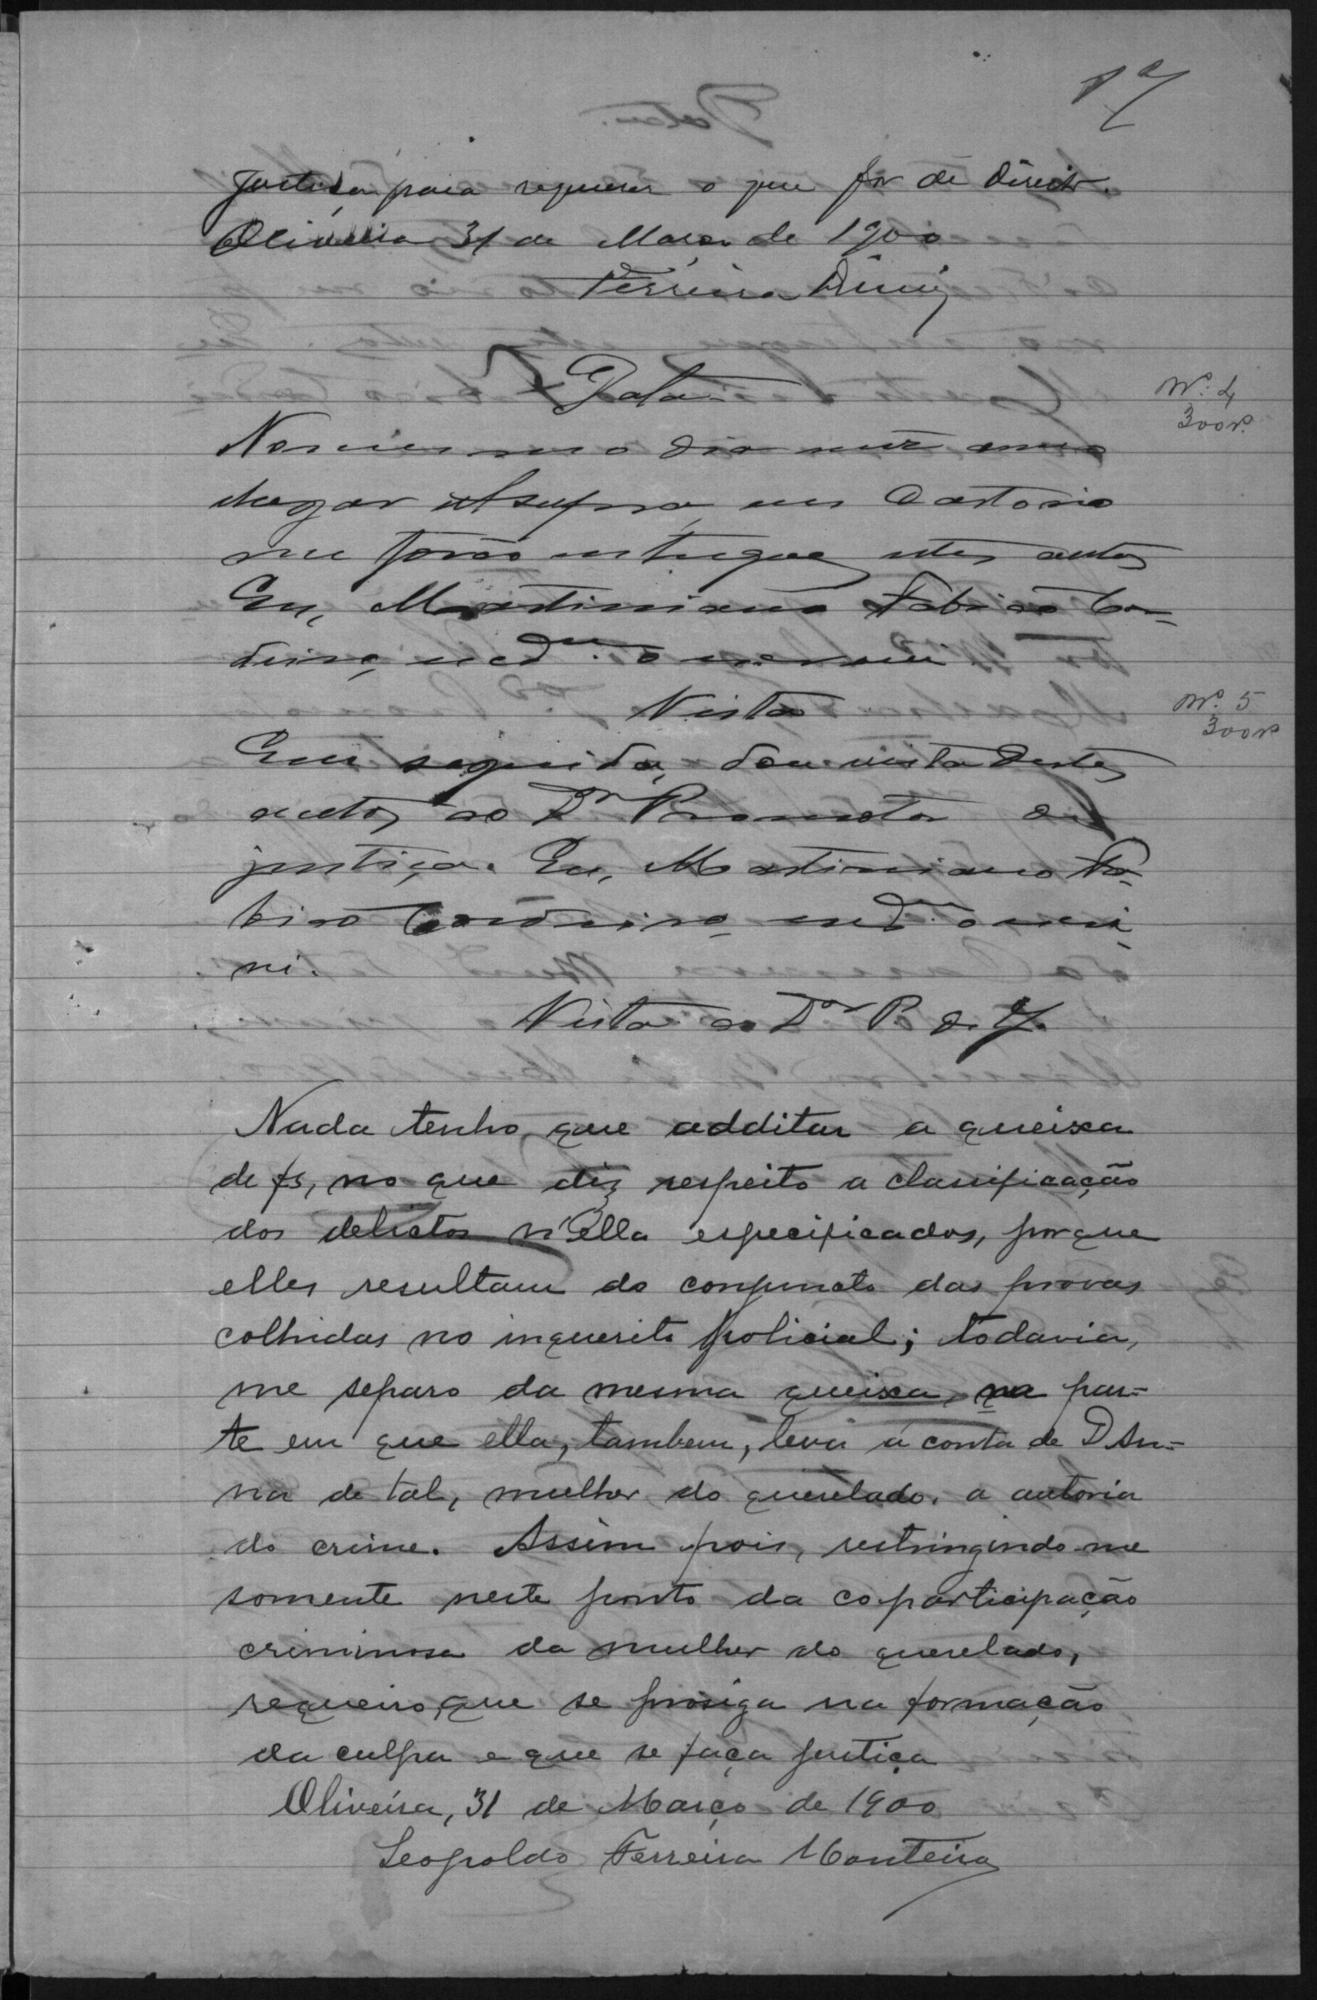 17
Justiça, para requerer o que for de direito.
Oliveira 31 de Março de 1900
Ferreira Diniz
Data
Nº 4
300 rs
No mesmo dia mez anno
logar et supra em Cartorio
me forão entregues estes autos
Eu, Martiniano Fabião Cor-
deiro, escrivão o escrevi
Vista
Nº 5
300 rs
Em seguida, dou vista destes
autos ao Dr Promotor da
justiça. Eu, Martiniano Fa-
bião Cordeiro, o escre-
vi.
Vista ao Dor P. da J.
Nada tenho que additar a queixa
de fs, no que diz respeito a classificação
dos delictos n'Ella especificados, porque
elles resultam do conjuncto das provas
colhidas no inquerito policial; todavia,
me separo da mesma queixa, na par-
te em que ella, tambem, leva á conta de D An-
na de tal, mulher do querelado, a autoria
do crime. Assim pois, restringindo-me
somente neste ponto da coparticipação
criminosa da mulher do querelado,
requeiro, que se prosiga na formação
da culpa e que se faça justiça
Oliveira, 31 de Março de 1900
Leopoldo Ferreira Monteiro